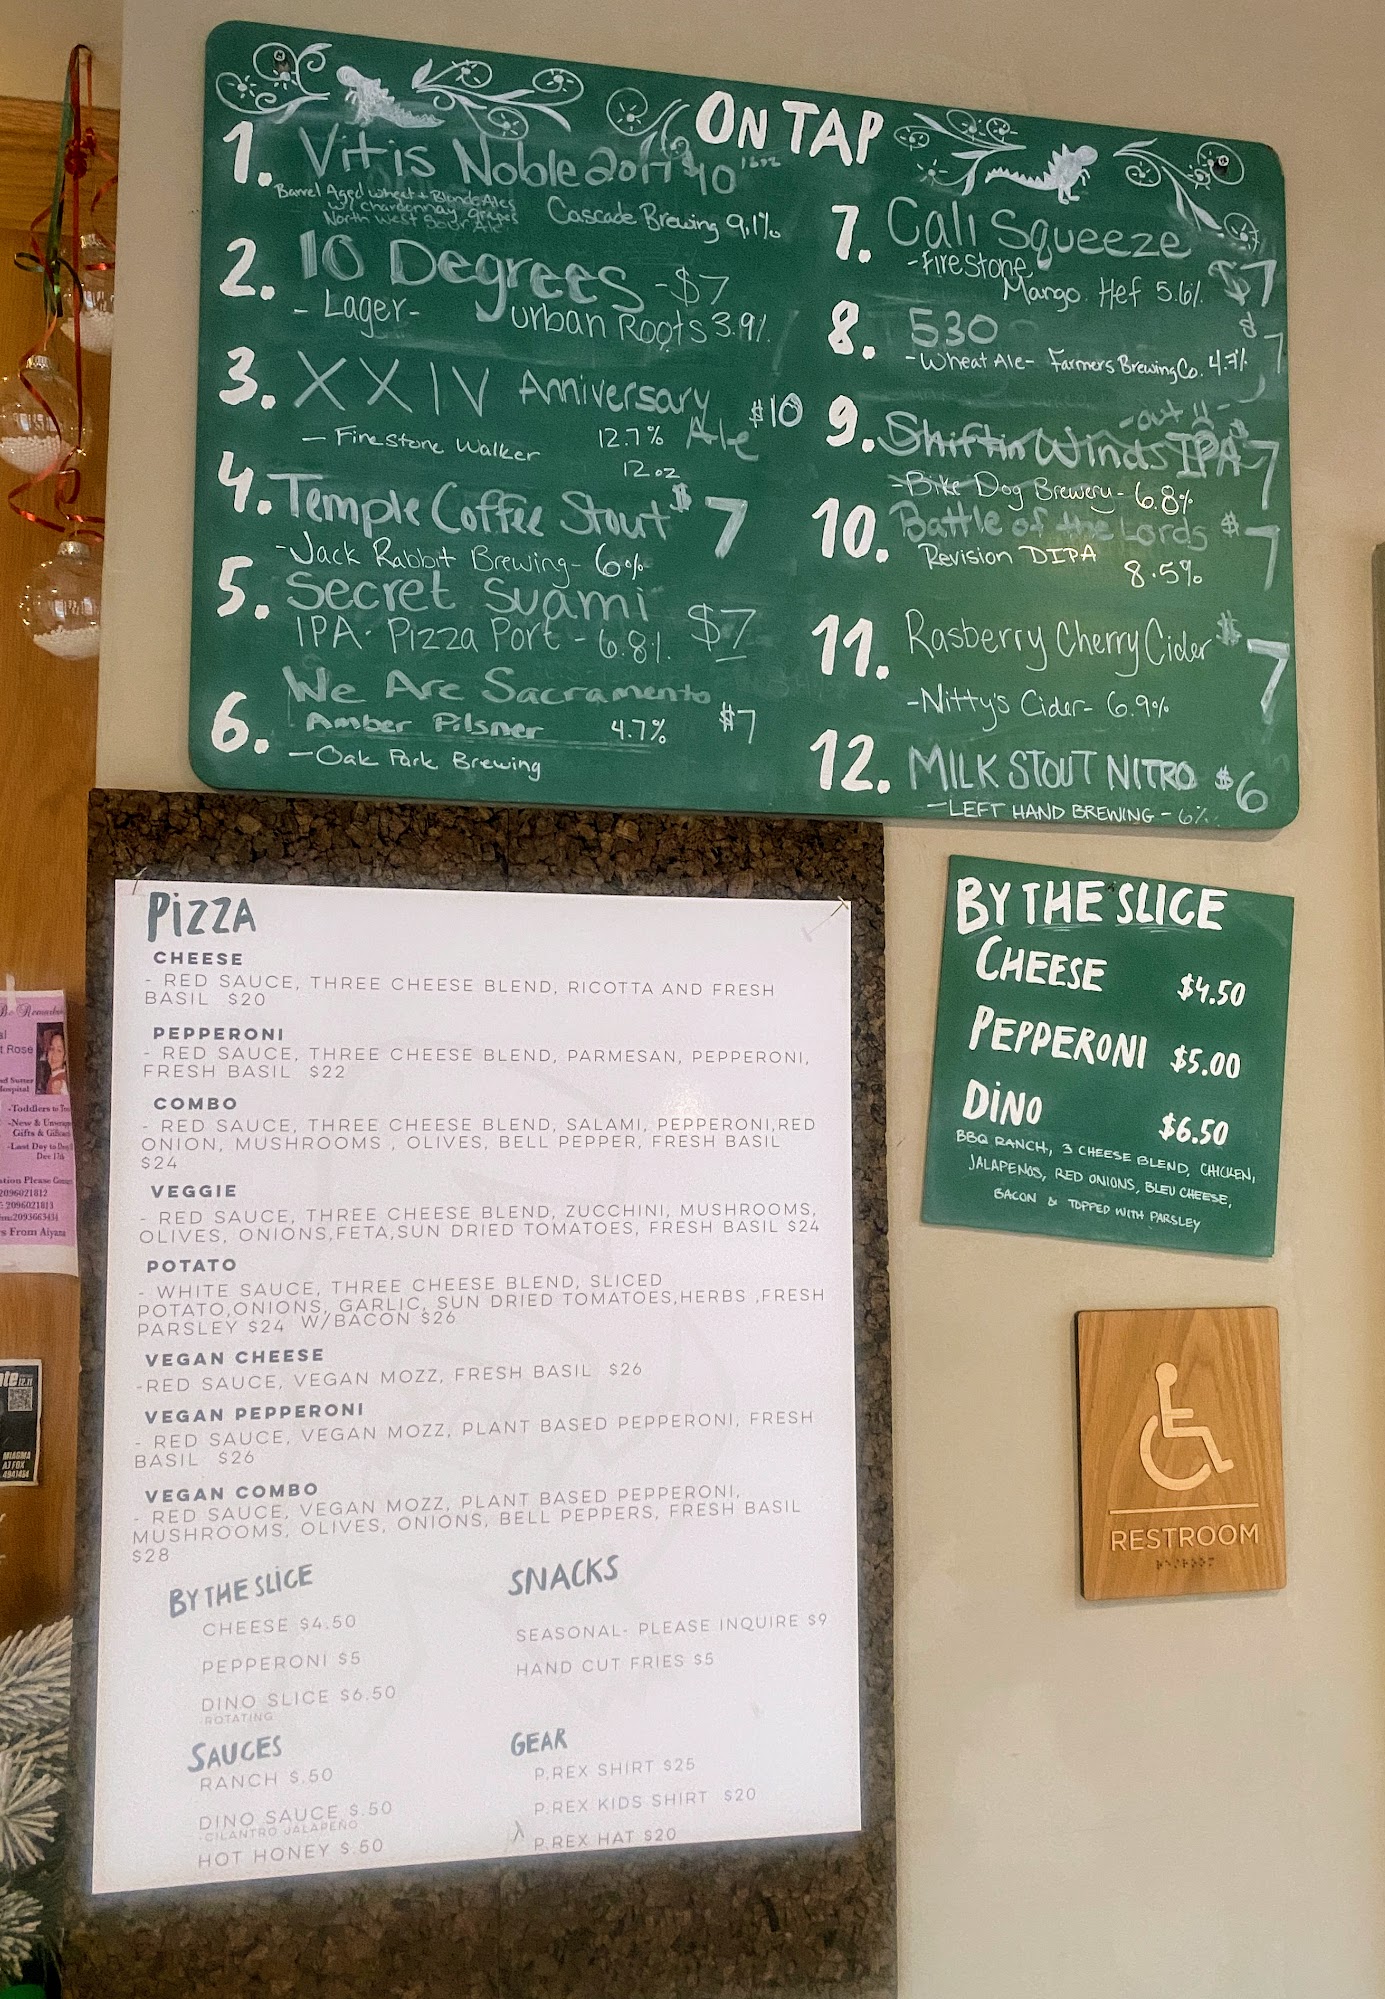 ON TAP
1. Vitis Noble 2017 $10 16oz
Barrel Aged wheat + Blonde Ales
w/ Chardonnay grapes
North West Sour Ale
Cascade Brewing 9.1%
2. 10 Degrees - $7
- Lager - Urban Roots 3.9%
3. XXIV Anniversary Ale $10
- Firestone Walker 12.7%
12oz
4. Temple Coffee Stout $7
- Jack Rabbit Brewing - 6%
5. Secret Swami $7
IPA - Pizza Port - 6.8%
6. We Are Sacramento
- Amber Pilsner 4.7% $7
- Oak Park Brewing
7. Cali Squeeze $7
- Firestone
Mango Hef 5.6%
8. 530 $7
- Wheat Ale - Farmers Brewing Co. 4.7%
- out !! -
9. Shiftin Winds IPA $7
- Bike Dog Brewery - 6.8%
10. Battle of the Lords $7
Revision DIPA
8.5%
11. Rasberry Cherry Cider $7
- Nitty's Cider - 6.9%
12. MILK STOUT NITRO $6
- LEFT HAND BREWING - 6%
PIZZA
CHEESE
- RED SAUCE, THREE CHEESE BLEND, RICOTTA AND FRESH
BASIL $20
PEPPERONI
- RED SAUCE, THREE CHEESE BLEND, PARMESAN, PEPPERONI,
FRESH BASIL $22
COMBO
- RED SAUCE, THREE CHEESE BLEND, SALAMI, PEPPERONI,RED
ONION, MUSHROOMS , OLIVES, BELL PEPPER, FRESH BASIL
$24
VEGGIE
- RED SAUCE, THREE CHEESE BLEND, ZUCCHINI, MUSHROOMS,
OLIVES, ONIONS,FETA,SUN DRIED TOMATOES, FRESH BASIL $24
POTATO
- WHITE SAUCE, THREE CHEESE BLEND, SLICED
POTATO,ONIONS, GARLIC, SUN DRIED TOMATOES,HERBS ,FRESH
PARSLEY $24 W/BACON $26
VEGAN CHEESE
-RED SAUCE, VEGAN MOZZ, FRESH BASIL $26
VEGAN PEPPERONI
- RED SAUCE, VEGAN MOZZ, PLANT BASED PEPPERONI, FRESH
BASIL $26
VEGAN COMBO
- RED SAUCE, VEGAN MOZZ, PLANT BASED PEPPERONI,
MUSHROOMS, OLIVES, ONIONS, BELL PEPPERS, FRESH BASIL
$28
BY THE SLICE
CHEESE $4.50
PEPPERONI $5
DINO SLICE $6.50
-ROTATING
SNACKS
SEASONAL- PLEASE INQUIRE $9
HAND CUT FRIES $5
SAUCES
RANCH $.50
DINO SAUCE $.50
-CILANTRO JALAPEÑO
HOT HONEY $.50
GEAR
P.REX SHIRT $25
P.REX KIDS SHIRT $20
P.REX HAT $20
BY THE SLICE
CHEESE $4.50
PEPPERONI $5.00
DINO $6.50
BBQ RANCH, 3 CHEESE BLEND, CHICKEN,
JALAPENOS, RED ONIONS, BLEU CHEESE,
BACON & TOPPED WITH PARSLEY
RESTROOM
Be
Rose
Sutter
Hospital
-Toddlers to
-New &
Gifts &
-Last Day to
Dec 17th
Please
2096021812
2096021813
2093663431
From Aiyana
12.11
MIAGMA
AJ FOX
4941464